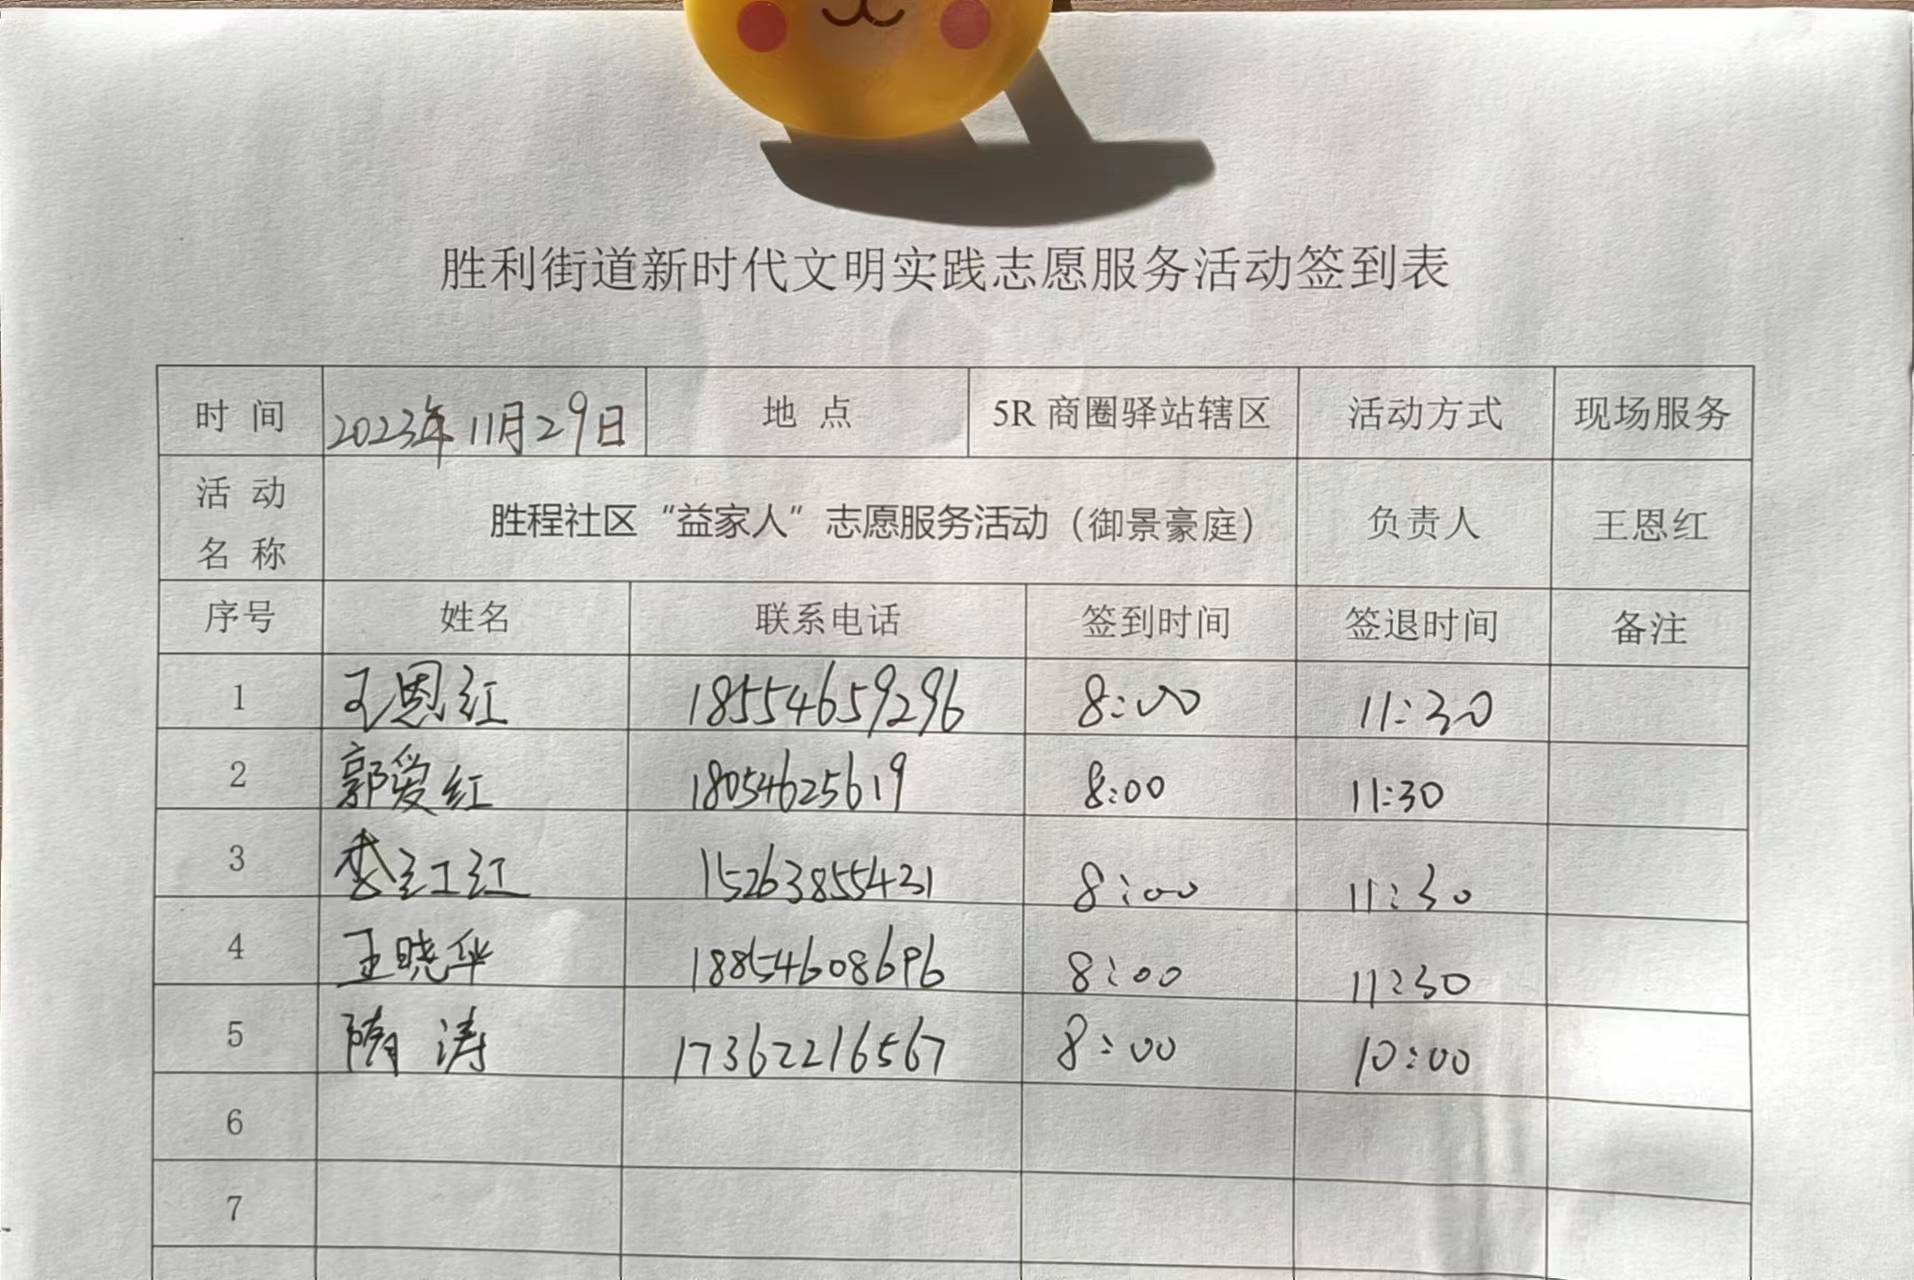 胜利街道新时代文明实践志愿服务活动签到表
时 间 2023年11月29日 地 点 5R 商圈驿站辖区 活动方式 现场服务
活 动 名 称 胜程社区“益家人”志愿服务活动（御景豪庭） 负责人 王恩红
序号 姓名 联系电话 签到时间 签退时间 备注
1 王恩红 18554659296 8:00 11:30
2 郭爱红 18054625619 8:00 11:30
3 李红红 15263855431 8:00 11:30
4 王晓华 18854608696 8:00 11:30
5 隋涛 17362216567 8:00 10:00
6
7